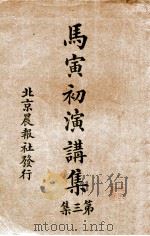 馬寅初演講集
第三集
北京晨報社發行